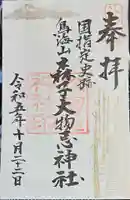 奉拝
国指定史跡
鳥海山森子大物忌神社
令和五年十月二十二日